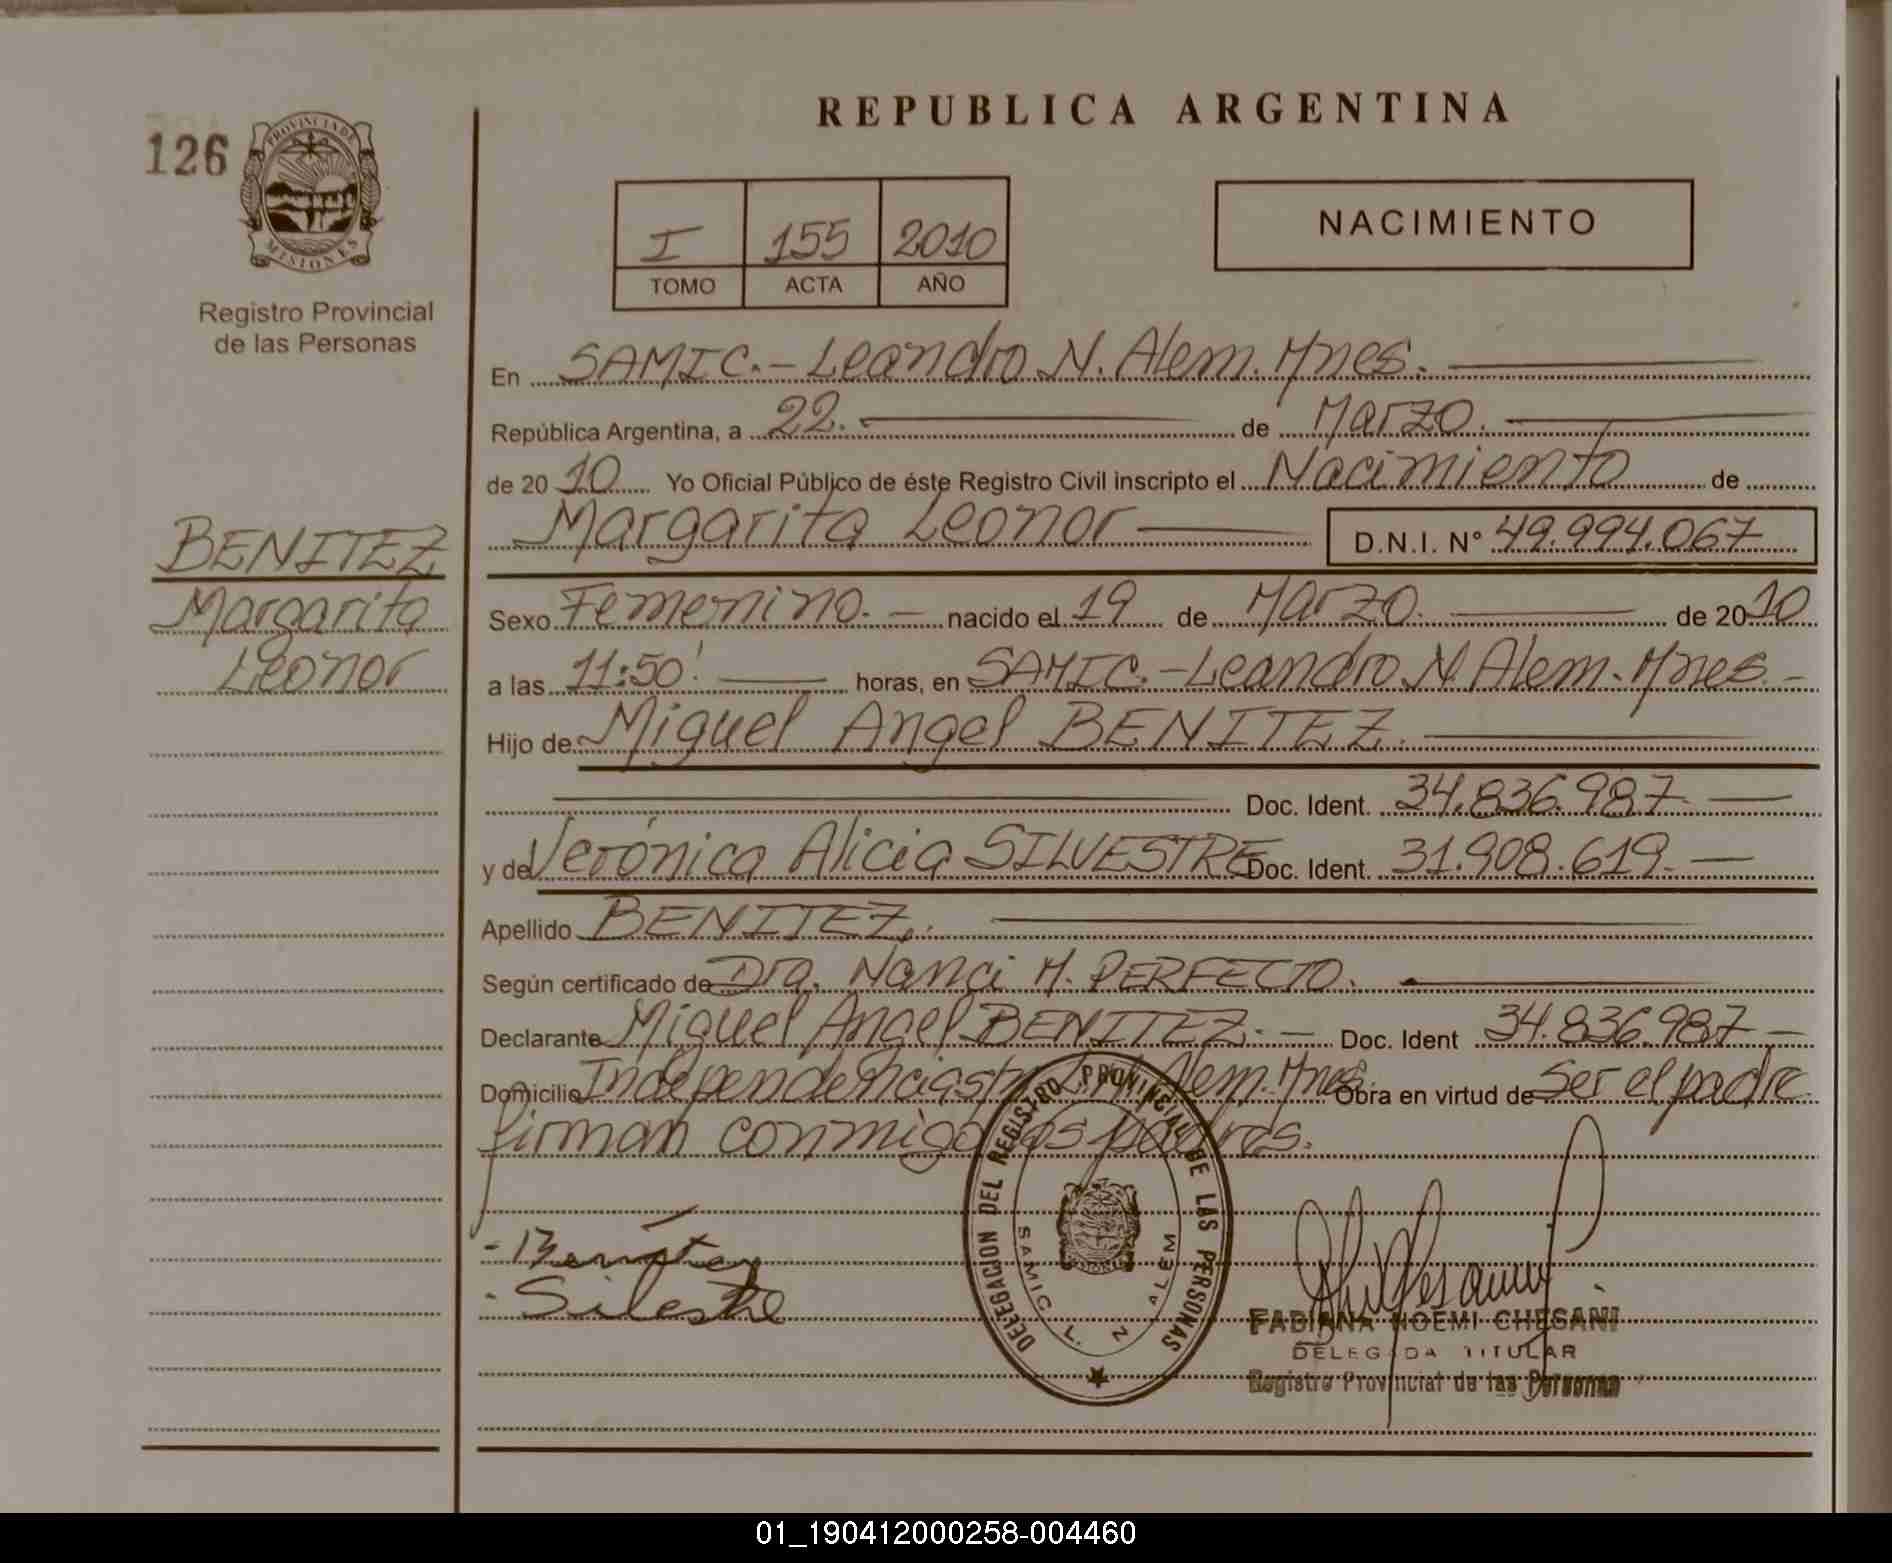 126
PROVINCIA DE
MISIONES
Registro Provincial
de las Personas
BENITEZ
Margarita
Leonor
REPUBLICA ARGENTINA
I 155 2010
TOMO ACTA AÑO
NACIMIENTO
En SAMIC.- Leandro N. Alem. Mnes.
República Argentina, a 22. de Marzo.
de 2010 Yo Oficial Público de éste Registro Civil inscripto el Nacimiento de
Margarita Leonor D.N.I. N° 49.994.067
Sexo Femenino. nacido el 19 de Marzo. de 2010
a las 11:50' horas, en SAMIC.-Leandro N Alem. Mnes.
Hijo de Miguel Angel BENITEZ.
Doc. Ident. 34.836.987.
y de Verónica Alicia SILVESTRE Doc. Ident. 31.908.619.
Apellido BENITEZ.
Según certificado de Dra. Nanci M. PERFECTO.
Declarante Miguel Angel BENITEZ. Doc. Ident 34.836.987
Domicilio Independencia s/n L. N. Alem. Mnes. Obra en virtud de Ser el padre.
firman conmigo los padres.
- Benitez
- Silestre
DELEGACION DEL REGISTRO PROVINCIAL DE LAS PERSONAS
SAMIC L. N ALEM
FABIANA NOEMI CHESANI
DELEGADA TITULAR
Registro Provincial de las Personas
01_190412000258-004460